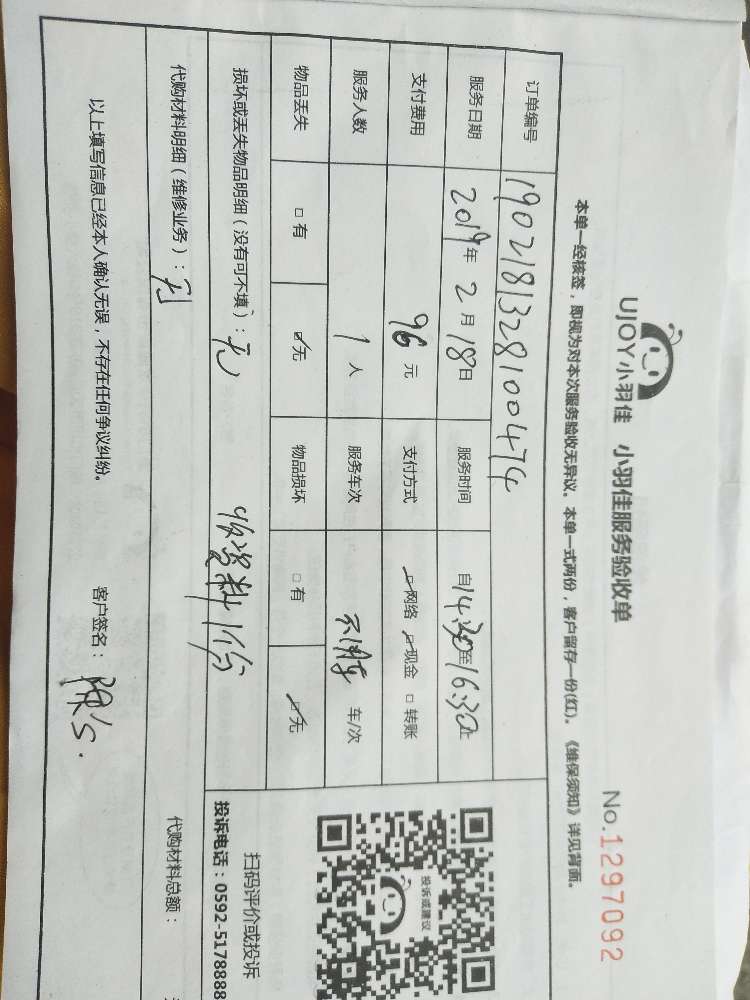 UJOY小羽佳 小羽佳服务验收单
No.1297092
本单一经核签，即视为对本次服务验收无异议。本单一式两份，客户留存一份(红)。《维保须知》详见背面。
订单编号 1902181328100474
服务日期 2019年2月18日 服务时间 自14:30至16:30止
支付费用 96元 支付方式 ☑网络 ☑现金 □转账
服务人数 1人 服务车次 车/次
物品丢失 □有 ☑无 物品损坏 □有 ☑无
损坏或丢失物品明细（没有可不填）：无
收资料1份
代购材料明细（维修业务）：无
代购材料总额：
以上填写信息已经本人确认无误，不存在任何争议纠纷。 客户签名：
投诉或建议
扫码评价或投诉
投诉电话：0592-5178888